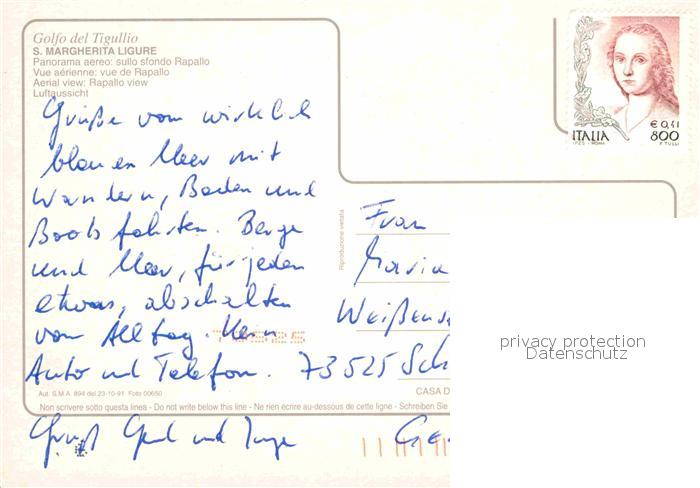 Golfo del Tigullio
S. MARGHERITA LIGURE
Panorama aereo: sullo sfondo Rapallo
Vue aérienne: vue de Rapallo
Aerial view: Rapallo view
Luftaussicht
€ 0,41
ITALIA 800
I.P.Z.S. - ROMA F. TULLI
Grüße vom wirklich
blauen Meer mit
Wandern, Baden und
Bootsfahrten. Berge
und Meer, für jeden
etwas, abschalten
vom Alltag. Kein
Auto und Telefon.
Gruß Gerd und Inge
Riproduzione vietata
Frau
Maria
Weißens
73525 Sch
Ge
privacy protection
Datenschutz
Aut. S.M.A. 894 del 23-10-91 Foto 00650
CASA D
Non scrivere sotto questa linea - Do not write below this line - Ne rien écrire au-dessous de cette ligne - Schreiben Sie